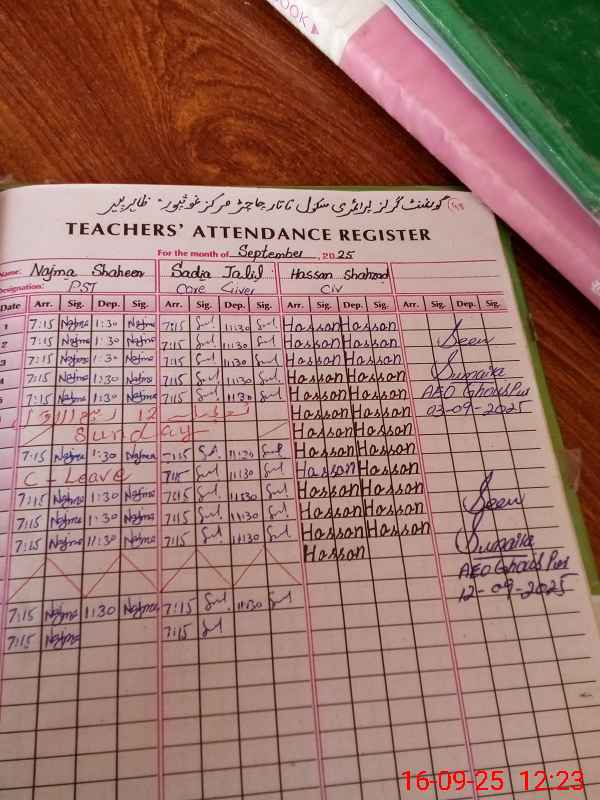 BOOK
گورنمنٹ گرلز پرائمری سکول تاتار چاچڑ مرکز غوثپور۔ ظاہر پیر
TEACHERS' ATTENDANCE REGISTER
For the month of September, 2025
Name: Najma Shaheen Sadia Jalil Hassan Shahzad
Designation: PST Care Giver CIV
Date Arr. Sig. Dep. Sig. Arr. Sig. Dep. Sig. Arr. Sig. Dep. Sig. Arr. Sig. Dep. Sig.
1 7:15 Najma 1:30 Najma 7:15 11:30 Hassan Hassan
2 7:15 Najma 1:30 Najma 7:15 11:30 Hassan Hassan Seen
3 7:15 Najma 1:30 Najma 7:15 11:30 Hassan Hassan
4 7:15 Najma 1:30 Najma 7:15 11:30 Hassan Hassan Sumaira
5 7:15 Najma 1:30 Najma 7:15 11:30 Hassan Hassan AEO Ghous Pur
12 ربیع الاول تعطیل Hassan Hassan 03-09-2025
Sunday Hassan Hassan
7:15 Najma 1:30 Najma 7:15 11:30 Hassan Hassan
C - Leave 7:15 11:30 Hassan Hassan
7:15 Najma 1:30 Najma 7:15 11:30 Hassan Hassan Seen
7:15 Najma 1:30 Najma 7:15 11:30 Hassan Hassan
7:15 Najma 11:30 Najma 7:15 11:30 Hassan Hassan Sumaira
Hassan AEO Ghous Pur
12-09-2025
7:15 Najma 11:30 Najma 7:15 11:30
7:15 Najma 7:15
16-09-25 12:23